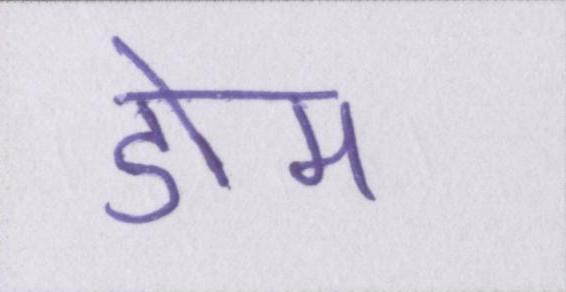 डोम